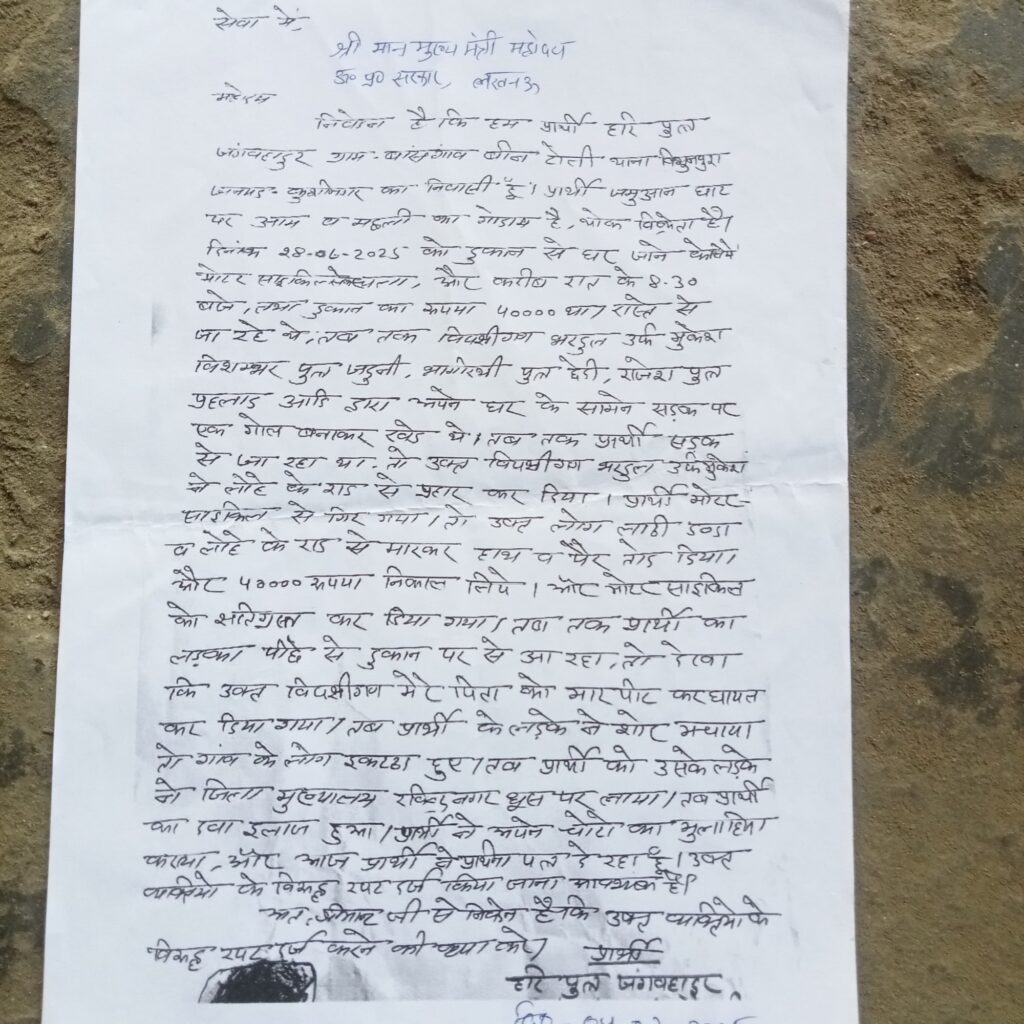 सेवा में,
श्री मान मुख्य मंत्री महोदय
उ० प्र० सरकार, लखनऊ
महोदय
निवेदन है कि हम प्रार्थी हरि पुत्र
जंगबहादुर ग्राम- बांसगांव बीन टोली थाना विशुनपुरा
जनपद- कुशीनगर का निवासी हूँ। प्रार्थी जमुआन घाट
पर आम व मछली का गोदाम है, थोक विक्रेता है।
दिनांक 28-06-2025 को दुकान से घर जाने के लिये
मोटर साइकिल से चला, और करीब रात के 8-30
बजे, तथा दुकान का रूपया 50000 था। रास्ते से
जा रहे थे, तब तक विपक्षीगण भरदुल उर्फ मुकेश
विशम्भर पुत्र जदुनी, भागीरथी पुत्र छेदी, राजेश पुत्र
प्रहलाद आदि द्वारा अपने घर के सामने सड़क पर
एक गोल बनाकर खड़े थे। तब तक प्रार्थी सड़क
से जा रहा था. तो उक्त विपक्षीगण भरदुल उर्फ मुकेश
ने लोहे के राड से प्रहार कर दिया। प्रार्थी मोटर
साइकिल से गिर गया। तो उक्त लोग लाठी डण्डा
व लोहे के राड से मारकर हाथ व पैर तोड दिया।
और 50000 रूपया निकाल लिये। और मोटर साइकिल
को क्षतिग्रस्त कर दिया गया। तब तक प्रार्थी का
लड़का पीछे से दुकान पर से आ रहा, तो देखा
कि उक्त विपक्षीगण मेरे पिता को मारपीट कर घायल
कर दिया गया। तब प्रार्थी के लड़के ने शोर मचाया
तो गांव के लोग इकट्ठा हुए। तब प्रार्थी को उसके लड़के
ने जिला मुख्यालय रविन्द्रनगर धूस पर लाया। तब प्रार्थी
का दवा इलाज हुआ। प्रार्थी ने अपने चोटो का मुलाहिजा
कराया, और आज प्रार्थी ने प्रार्थना पत्र दे रहा हूँ। उक्त
व्यक्तियो के विरूद्ध रपट दर्ज किया जाना आवश्यक है।
अतः श्रीमान जी से निवेदन है कि उक्त व्यक्तियो के
विरूद्ध रपट दर्ज करने की कृपा करें। प्रार्थी
हरि पुत्र जंगबहादुर